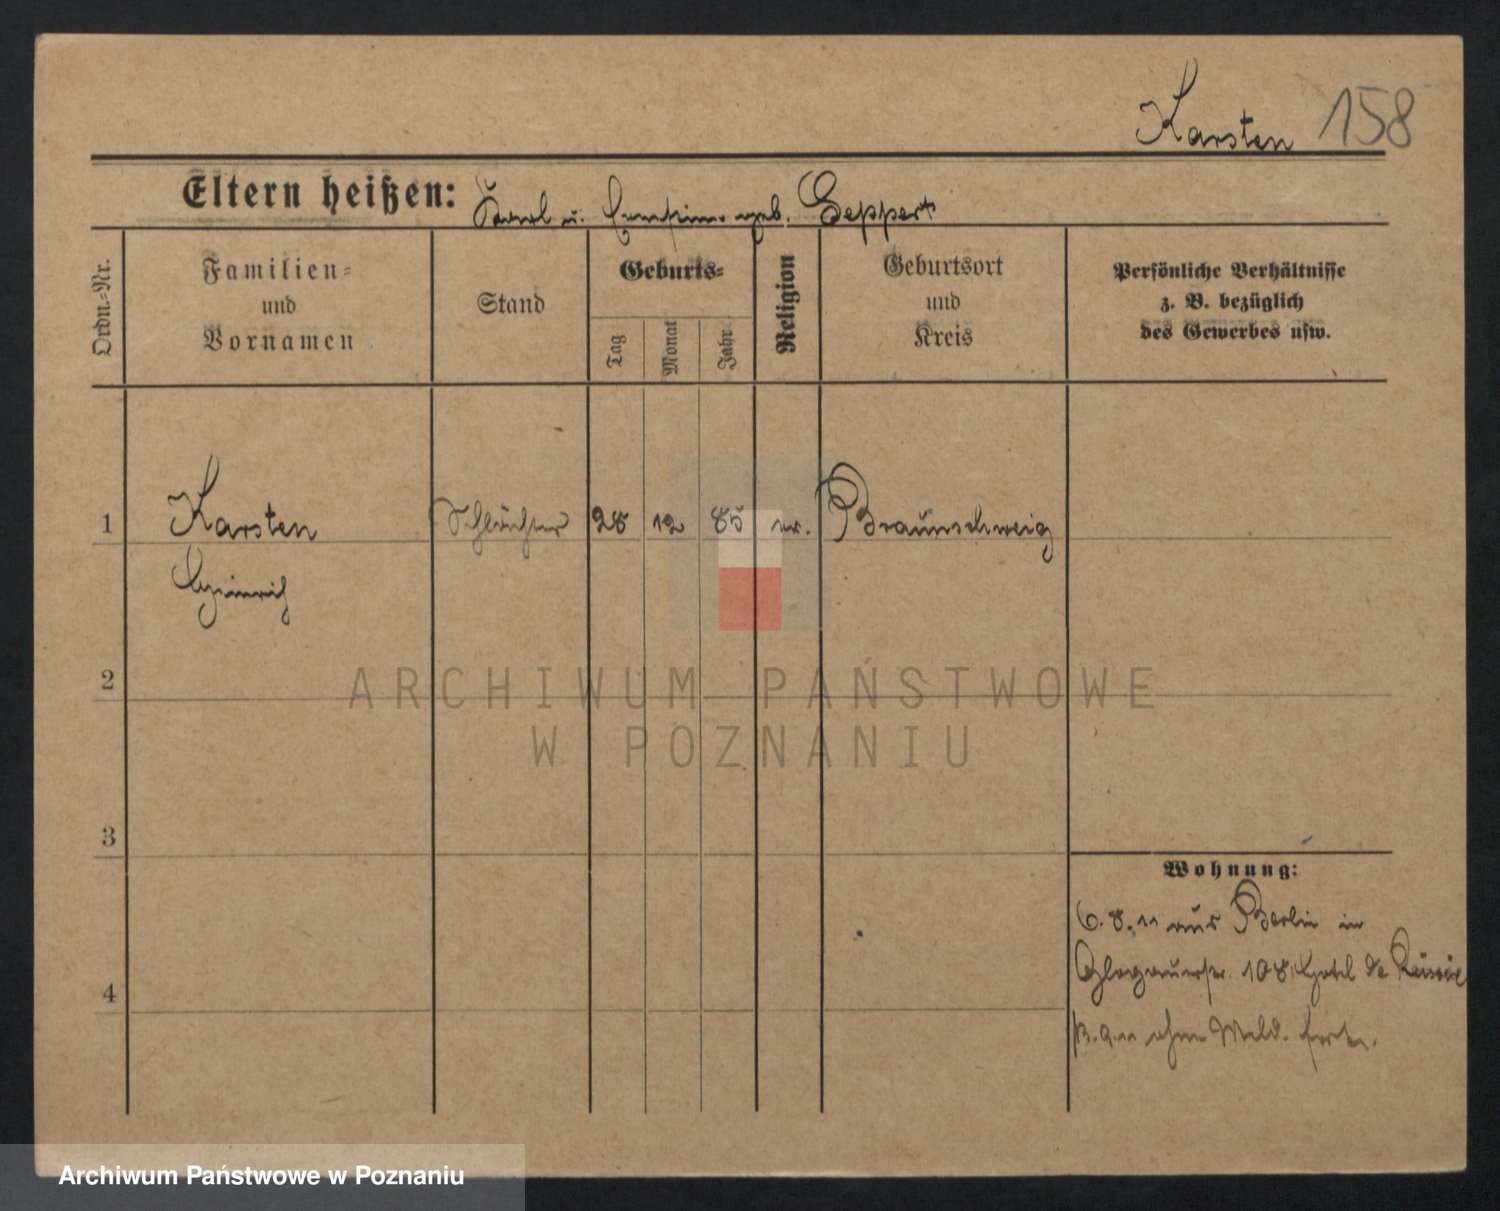 Karsten 158
Eltern heißen: Karl u. geb. Geppert
Ordn.=Nr.
Familien=
und
Vornamen
Stand
Geburts=
Tag
Monat
Jahr
Religion
Geburtsort
und
Kreis
Persönliche Verhältnisse
z. B. bezüglich
des Gewerbes usw.
1 Karsten Schlächter 28 12 85 ev. Braunschweig
Heinrich
2
3
4
Wohnung:
6.8.11 aus Berlin in
Glogauerstr. 108, Hotel de
9.11 ohne Meld. fort.
ARCHIWUM PAŃSTWOWE
W POZNANIU
Archiwum Państwowe w Poznaniu